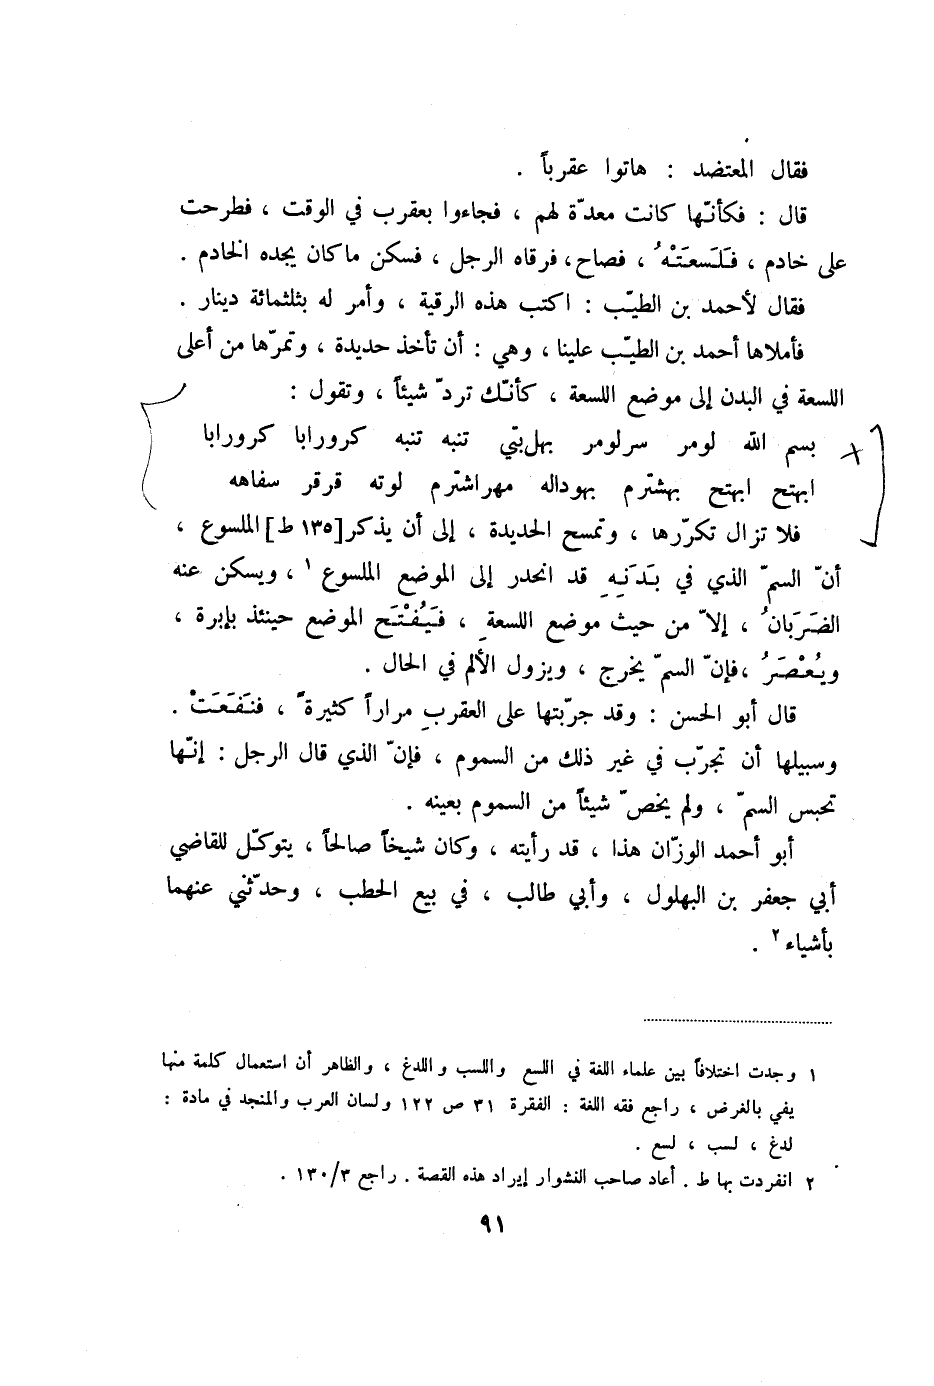 فقال المعتضد : هاتوا عقرباً .
قال : فكأنّها كانت معدّة لهم ، فجاءوا بعقرب في الوقت ، فطرحت
على خادم ، فَلَسعَتْهُ ، فصاح، فرقاه الرجل ، فسكن ماكان يجده الخادم .
فقال لأحمد بن الطيّب : اكتب هذه الرقية ، وأمر له بثلثمائة دينار .
فأملاها أحمد بن الطيّب علينا ، وهي : أن تأخذ حديدة ، وتمرّها من أعلى
اللسعة في البدن إلى موضع اللسعة ، كأنّك تردّ شيئاً ، وتقول :
بسم الله لومر سرلومر بهل‌بتي تنبه تنبه كرورابا كرورابا
ابهتح ابهتح بهشترم بهوداله مهراشترم لوته قرقر سفاهه
فلا تزال تكرّرها ، وتمسح الحديدة ، إلى أن يذكر[١٣٥ ط] الملسوع ،
أنّ السمّ الذي في بَدَنِهِ قد انحدر إلى الموضع الملسوع ١ ، ويسكن عنه
الضَرَبانُ ، إلاّ من حيث موضع اللسعةِ ، فَيُفْتَح الموضع حينئذ بإبرة ،
ويُعْصَرُ ،فإنّ السمّ يخرج ، ويزول الألم في الحال .
قال أبو الحسن : وقد جرّبتها على العقربِ مراراً كثيرةً ، فنَفَعَتْ .
وسبيلها أن تجرّب في غير ذلك من السموم ، فإنّ الذي قال الرجل : إنّها
تحبس السمّ ، ولم يخصّ شيئاً من السموم بعينه .
أبو أحمد الوزّان هذا ، قد رأيته ، وكان شيخاً صالحاً ، يتوكّل للقاضي
أبي جعفر بن البهلول ، وأبي طالب ، في بيع الحطب ، وحدّثني عنهما
بأشياء ٢ .
١ وجدت اختلافاً بين علماء اللغة في اللسع واللسب واللدغ ، والظاهر أن استعمال كلمة منها
يفي بالغرض ، راجع فقه اللغة : الفقرة ٣١ ص ١٢٢ ولسان العرب والمنجد في مادة :
لدغ ، لسب ، لسع .
٢ انفردت بها ط . أعاد صاحب النشوار إيراد هذه القصة . راجع ١٣٠/٣ .
٩١